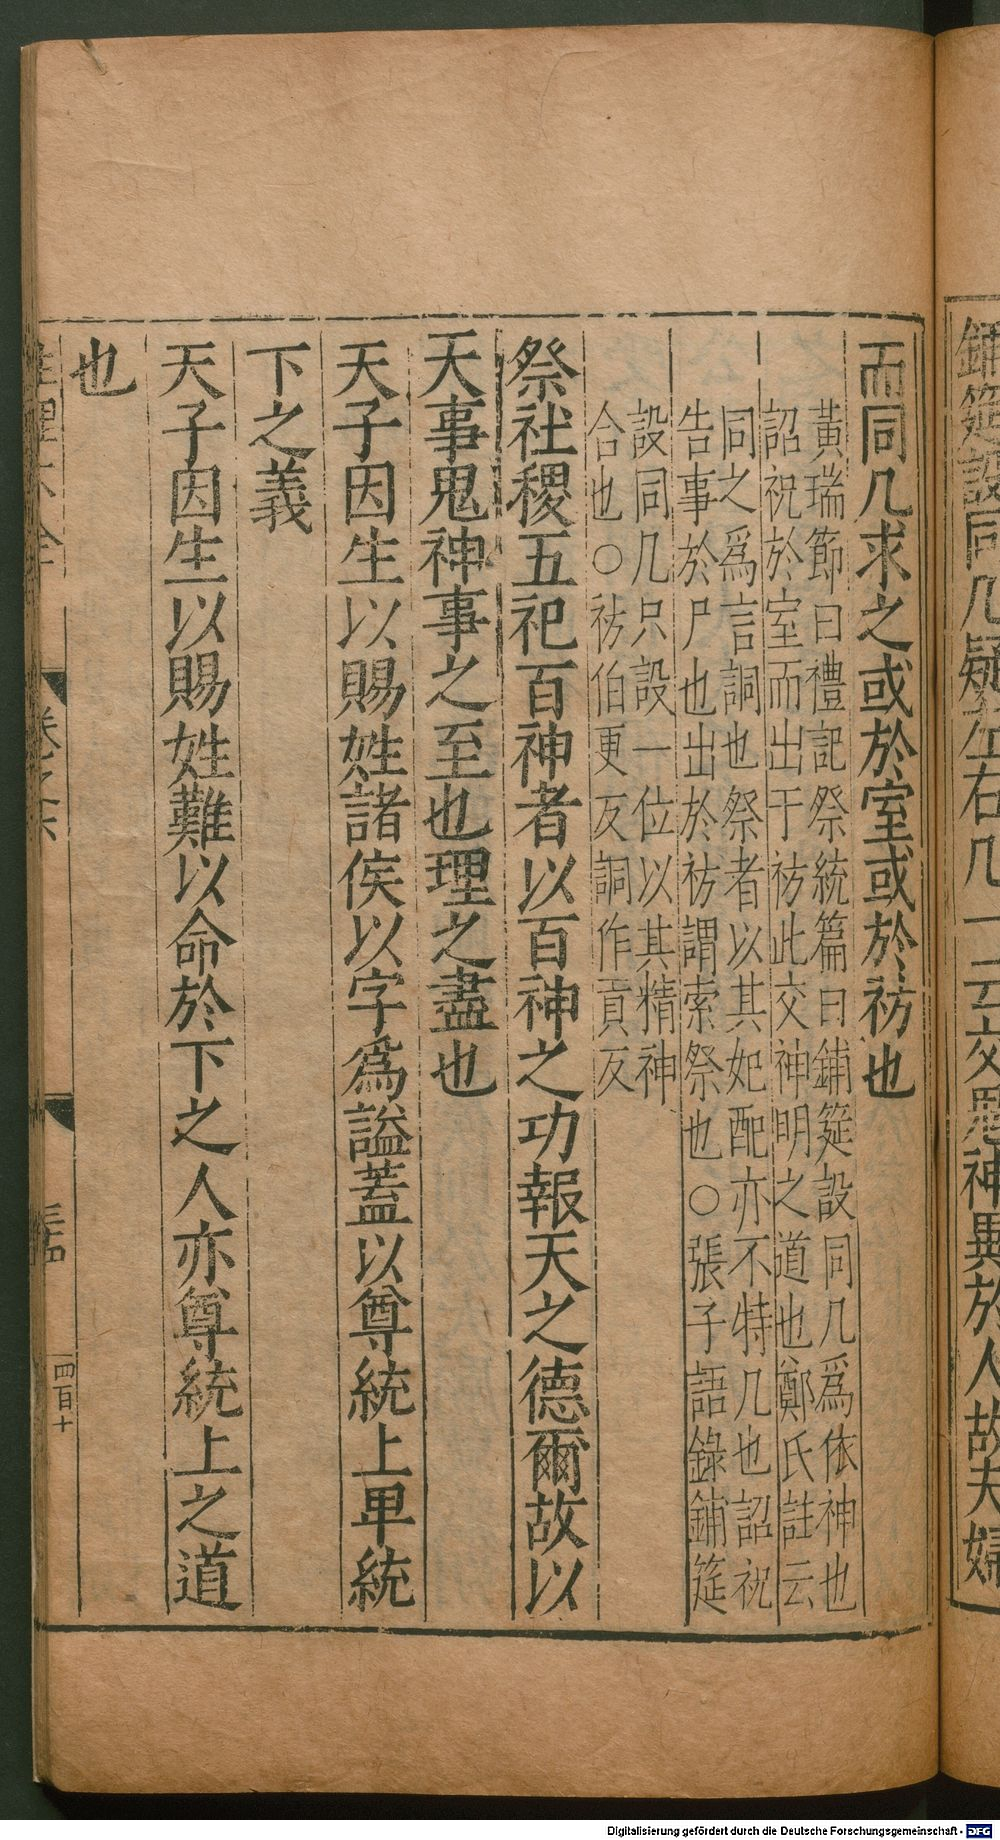 鋪筵設同几疑左右几一云交鬼神異於人故夫婦
而同几求之或於室或於祊也
黃瑞節曰禮記祭統篇曰鋪筵設同几爲依神也
詔祝於室而出于祊此交神明之道也鄭氏註云
同之爲言詷也祭者以其妃配亦不特几也詔祝
告事於尸也出於祊謂索祭也○張子語錄鋪筵
設同几只設一位以其精神
合也○祊伯更反詷作貢反
祭社稷五祀百神者以百神之功報天之德爾故以
天事鬼神事之至也理之盡也
天子因生以賜姓諸侯以字爲謚蓋以尊統上卑統
下之義
天子因生以賜姓難以命於下之人亦尊統上之道
也
性理大全
卷之六
三十四
四百十
Digitalisierung gefördert durch die Deutsche Forschungsgemeinschaft - DFG